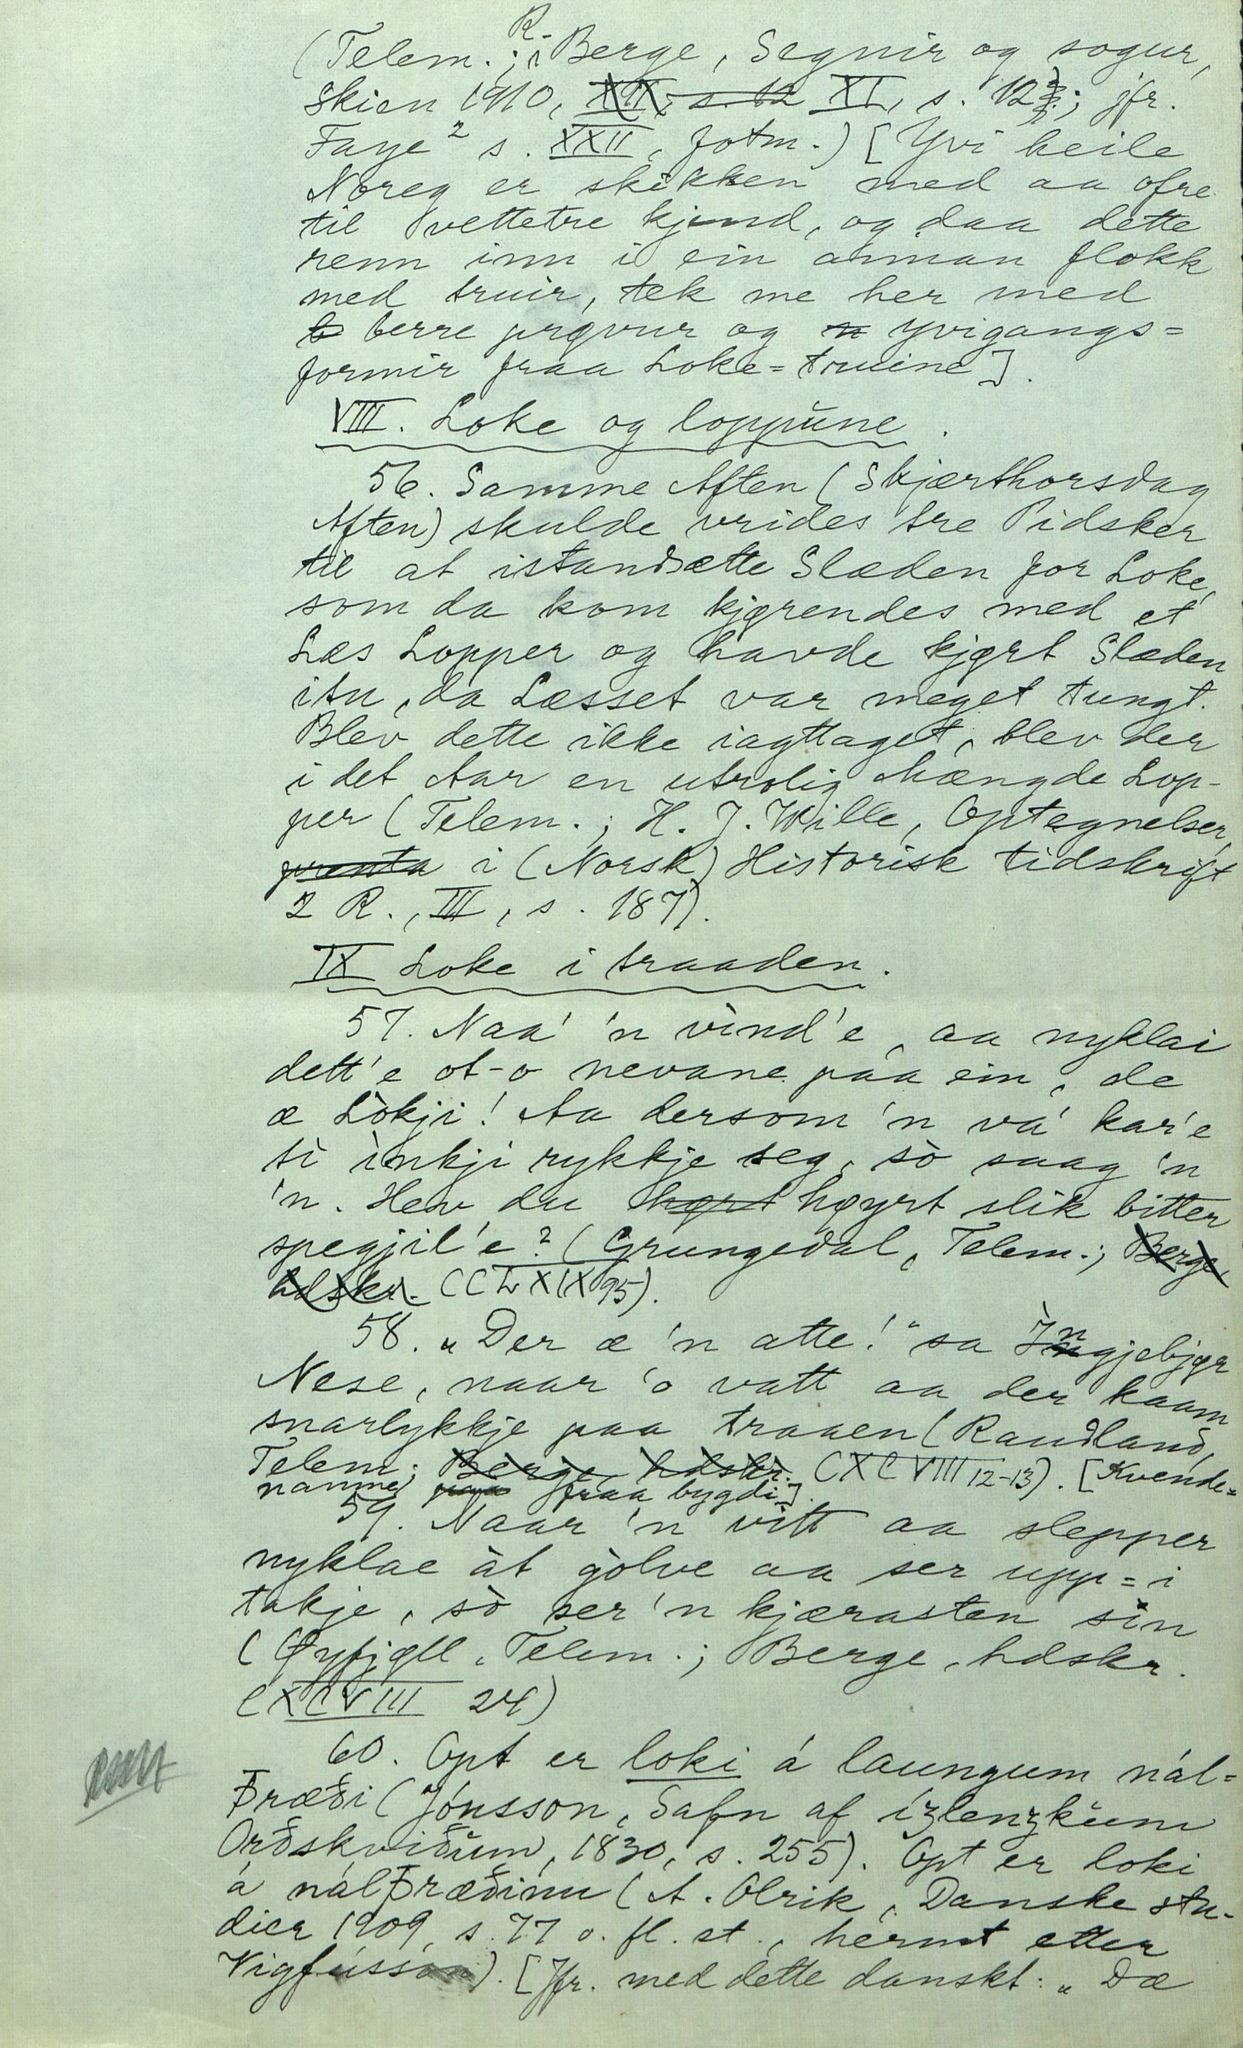 (Telem.; R. Berge, Segnir og sogur,
Skien 1910, XI, s. 12; jfr.
Faye² s. XXII, fotm.) [Yvi heile
Noreg er skikken med aa ofre
til vettetre kjend, og daa dette
renn inn i ein annan flokk
med truir, tek me her med
berre prøvur og yvigangs=
formir fraa Loke=truine].
VIII. Loke og loppune.
56. Samme Aften (Skjærthorsdag
Aften) skulde vrides tre Pidsker
til at istandsætte Slæden for Loke,
som da kom kjørendes med et
Læs Lopper og havde kjørt Slæden
itu, da Læsset var meget tungt.
Blev dette ikke iagttaget, blev der
i det Aar en utrolig Mængde Lop-
per (Telem.; H. J. Wille, Optegnelser,
prenta i (Norsk) Historisk tidskrift
2 R., III, s. 187).
IX Loke i traaden.
57. Naa' 'n vind'e, aa nyklai
dett'e ot-o nevane paa ein, de
æ Lòkji! Aa dersom 'n va' kar'e
ti inkji rykkje seg, sò saag 'n
'n. Hev du hørt høyrt slik bitter
spegjil'e? (Grungedal, Telem.; Berge,
hdskr. CCLXIX 95).
58. „Der æ 'n atte!“ sa Inngjebjør
Nese, naar 'o vatt aa der kaam
snarlykkje paa traaen (Raudland,
Telem; Berge, hdskr. CXCVIII 12-13). [Kvende=
namne fraa bygdi].
59. Naar 'n vitt aa slepper
nyklae àt gòlve aa ser upp=i
takje, sò ser'n kjærasten sin
(Øyfjell, Telem.; Berge, hdskr.
CXCVIII 24)
60. Opt er loki á laungum nál=
þræði (Jónsson, Safn af íslenzkum
Orðskviðum, 1830, s. 255). Opt er loki
á nálþræðinu (A. Olrik, Danske stu-
dier 1909, s. 77 o. fl. st., hermt etter
Vigfússon). [Jfr. med dette danskt: „Dæ